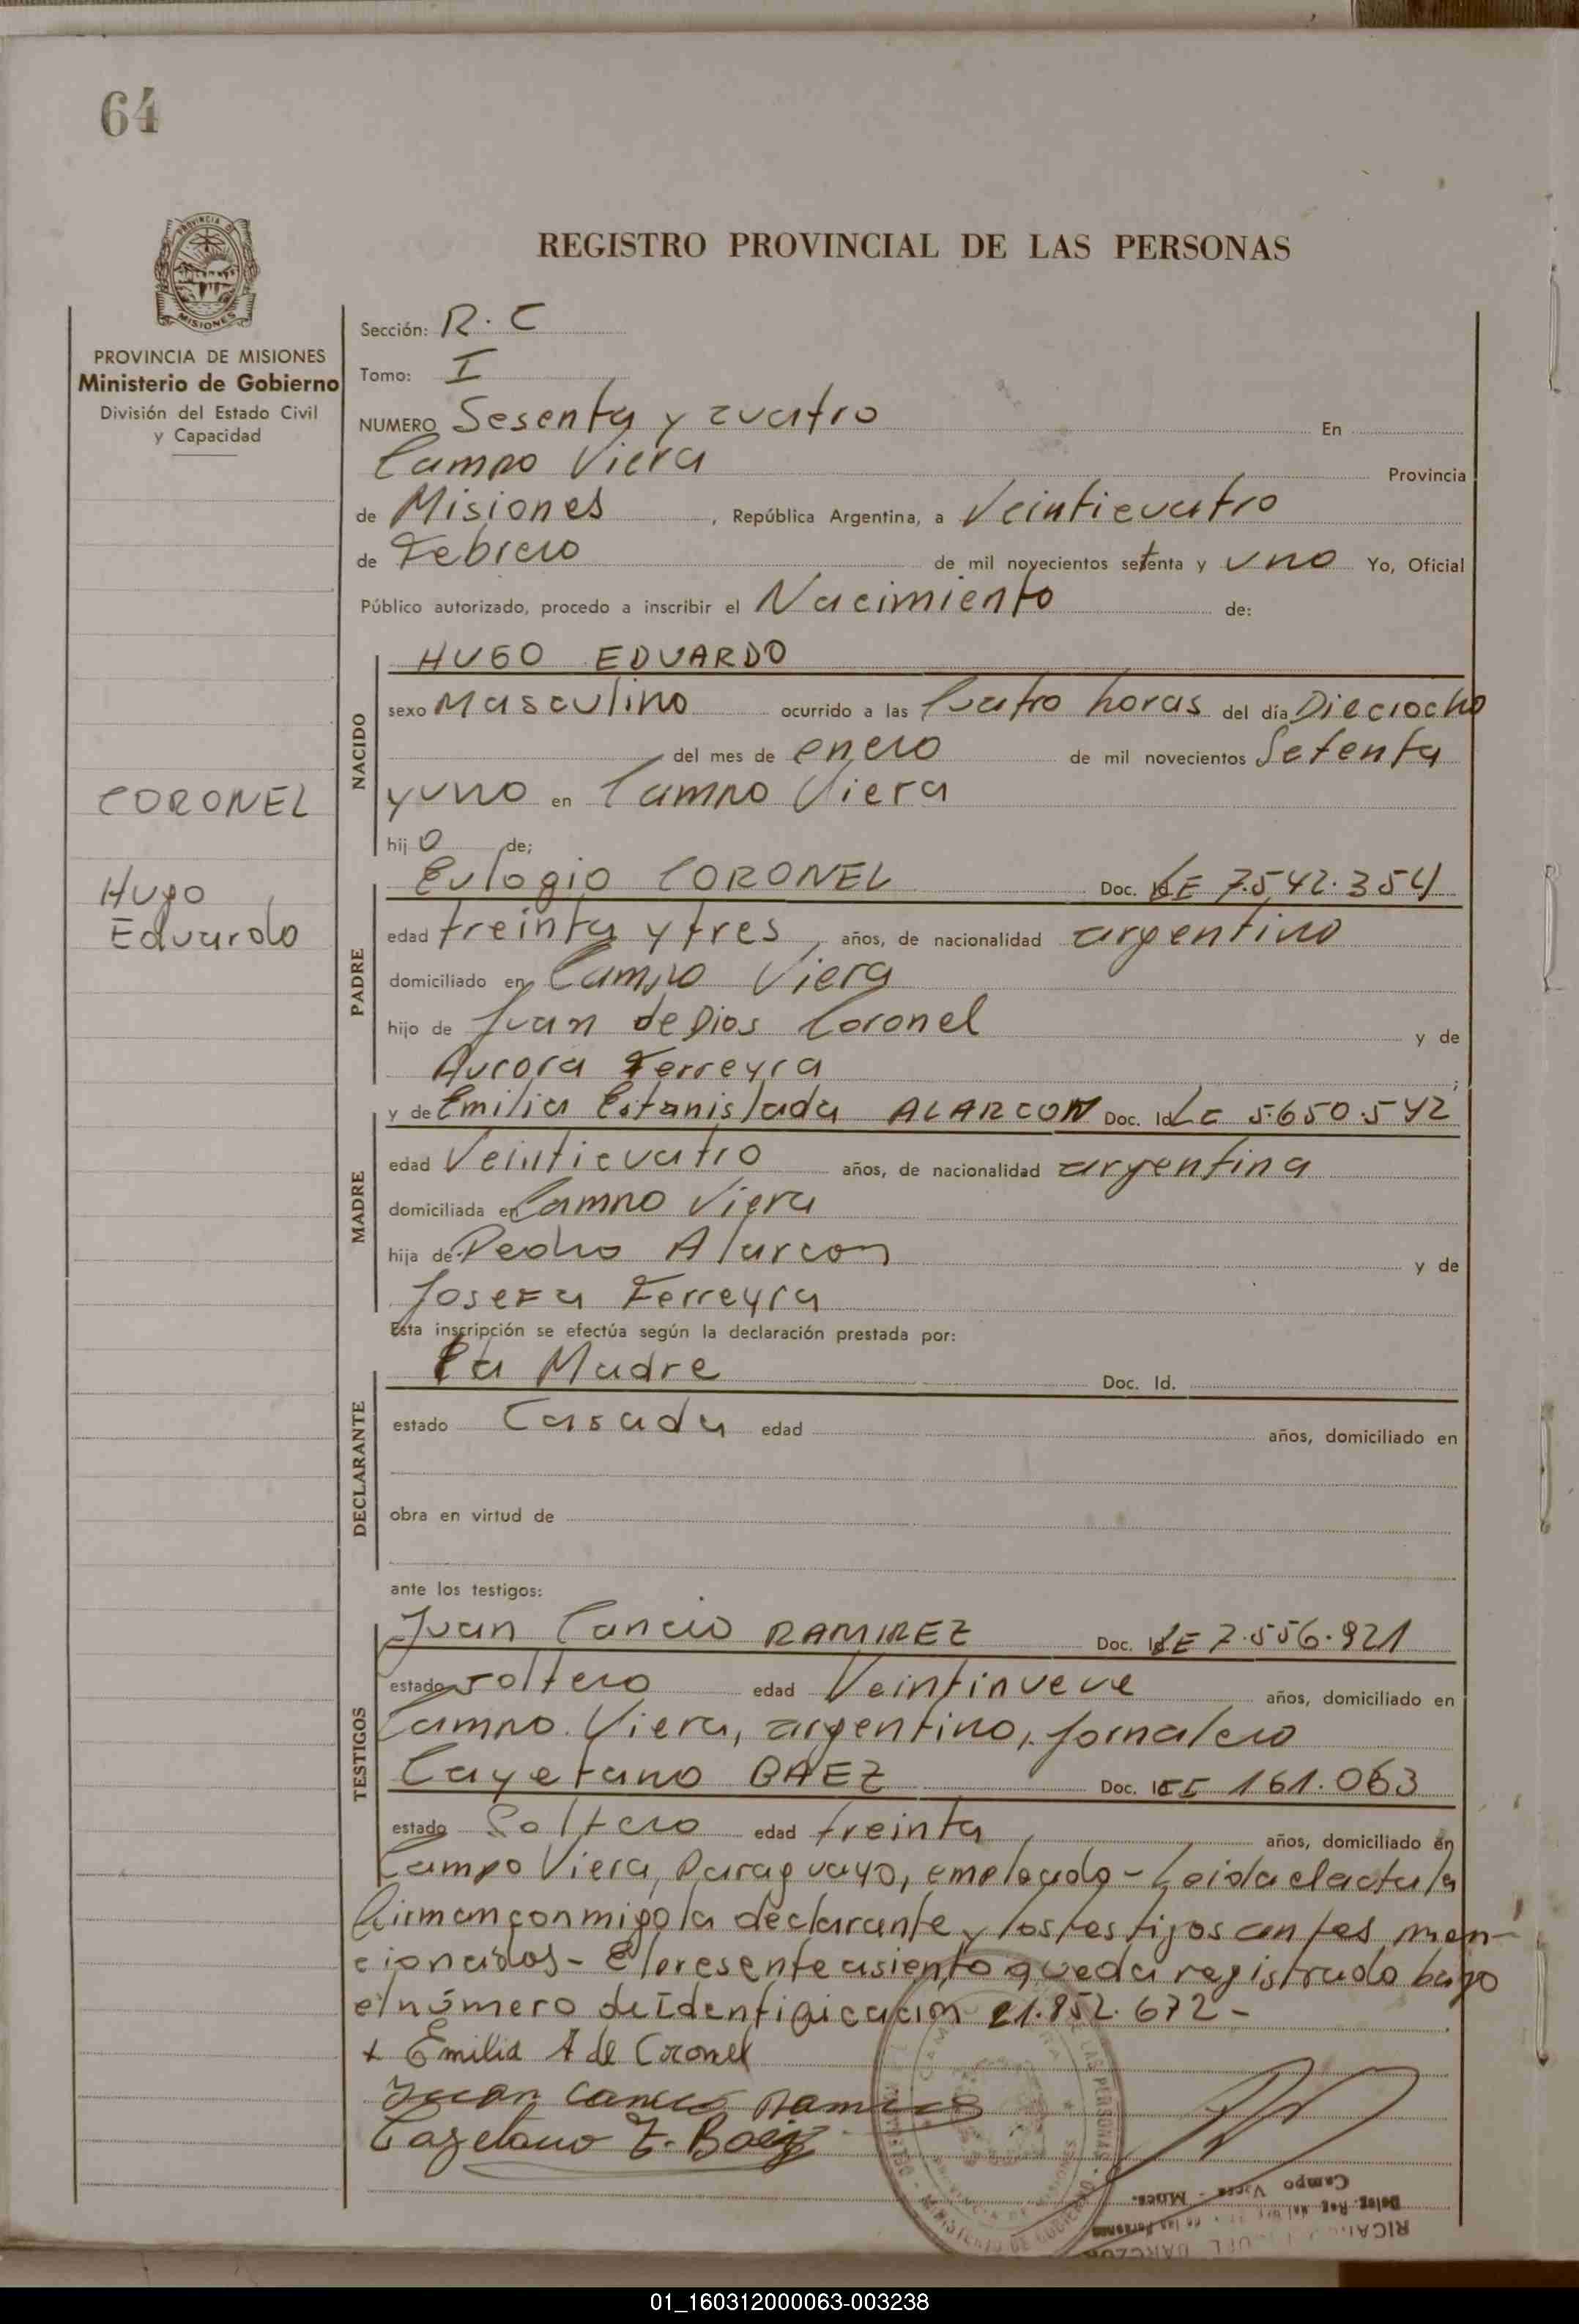 64
PROVINCIA DE
MISIONES
PROVINCIA DE MISIONES
Ministerio de Gobierno
División del Estado Civil
y Capacidad
CORONEL
Hugo
Eduardo
REGISTRO PROVINCIAL DE LAS PERSONAS
Sección: R. C
Tomo: I
NUMERO Sesenta y cuatro En
Campo Viera Provincia
de Misiones , República Argentina, a Veinticuatro
de Febrero de mil novecientos setenta y uno Yo, Oficial
Público autorizado, procedo a inscribir el Nacimiento de:
NACIDO
HUGO EDUARDO
sexo Masculino ocurrido a las Cuatro horas del día Dieciocho
del mes de enero de mil novecientos Setenta
y uno en Campo Viera
hij o de;
PADRE
Eulogio CORONEL Doc. Id. LE 7.542.354
edad treinta y tres años, de nacionalidad argentino
domiciliado en Campo Viera
hijo de Juan de Dios Coronel y de
Aurora Ferreyra ;
MADRE
y de Emilia Estanislada ALARCON Doc. Id. LC 5.650.542
edad Veinticuatro años, de nacionalidad argentina
domiciliada en Campo Viera
hija de Pedro Alarcon y de
Josefa Ferreyra
Esta inscripción se efectúa según la declaración prestada por:
DECLARANTE
La Madre Doc. Id.
estado Casada edad años, domiciliado en
obra en virtud de
ante los testigos:
TESTIGOS
Juan Cancio RAMIREZ Doc. Id. LE 7.556.921
estado soltero edad Veintinueve años, domiciliado en
Campo Viera, argentino, jornalero
Cayetano BAEZ Doc. Id. CI 161.063
estado Soltero edad treinta años, domiciliado en
Campo Viera, Paraguayo, empleado - Leida el acta la
firman conmigo la declarante y los testigos antes men-
cionados - El presente asiento queda registrado bajo
el número de Identificación 21.852.672 -
x Emilia A de Coronel
Juan Cancio Ramirez
Cayetano Z. Baez
LAS PERSONAS
MINISTERIO DE GOBIERNO
PROVINCIA DE MISIONES
Campo Viera - Mnes.
de las Personas
01_160312000063-003238